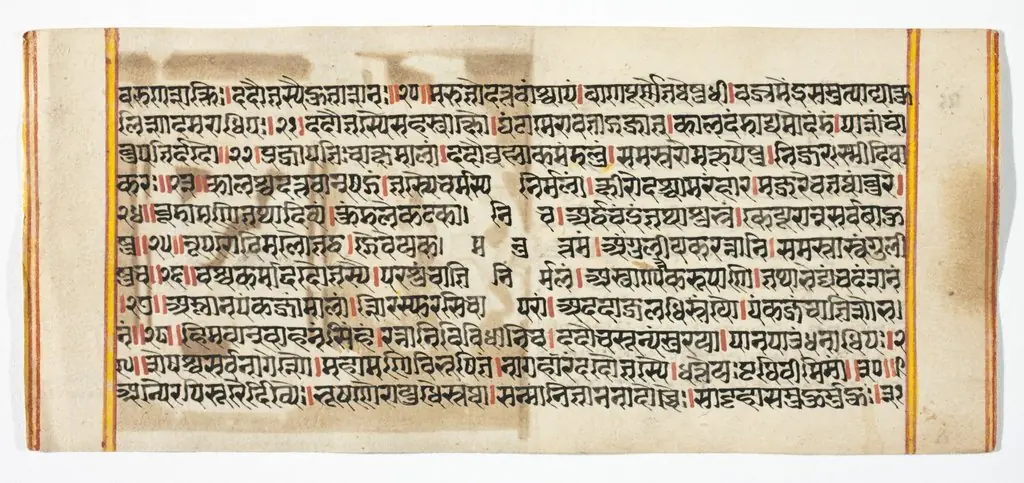 वरुणाच्छक्तिं। ददौ तस्यै हुताशनः।२०॥मारुतो दत्तवांश्चापं।बाणपूर्णे तथेषुधी।वज्रमिंद्रसमुत्पाद्य कु
लिशादमराधिपः।२१॥ददौ तस्यै सहस्राक्षो।घंटामैरावताद्गजात।कालदंडाद्यमो दंडं।पाशं चां
बुपतिर्ददौ॥२२॥प्रजापतिश्चाक्षमालां।ददौ ब्रह्मा कमंडलुं।समस्तरोमकूपेषु।निजरश्मीदिवा
करः॥२३॥कालश्च दत्तवान् खड्गं।तस्यै चर्म च निर्मलं।क्षीरोदश्चामलं हार।मजरे च तथांबरे।
२४॥चूडामणिं तथा दिव्यं।कुंडले कटकानि च।अर्द्धचंद्रं तथा शुभ्रं।केयूरान् सर्वबाहु
षु॥२५॥नूपुरौ विमलौ तद्व।द्ग्रैवेयकमनुत्तमं।अंगुलीयकरत्नानि।समस्तास्वंगुली
षु च॥२६॥विश्वकर्मा ददौ तस्यै।परशुं चातिनिर्मलं।अस्त्राण्यनेकरूपाणि।तथाभेद्यं च दंशनं
।२७॥अम्लानपंकजां मालां।शिरस्युरसि चापरां।अददाज्जलधिस्तस्यै।पंकजं चातिशोभ
नं॥२८॥हिमवान् वाहनं सिंहं।रत्नानि विविधानि च।ददावशून्यं सुरया।पानपात्रं धनाधिपः।२
९॥शेषश्च सर्वनागेशो।महामणिविभूषितं।नागहारं ददौ तस्यै।धत्ते यः पृथिवीमिमां॥३०॥
अन्यैरपि सुरैर्देवी।भूषणैरायुधैस्तथा।सन्मानिता ननादोच्चैः।साट्टहासं मुहुर्मुहुः।३१